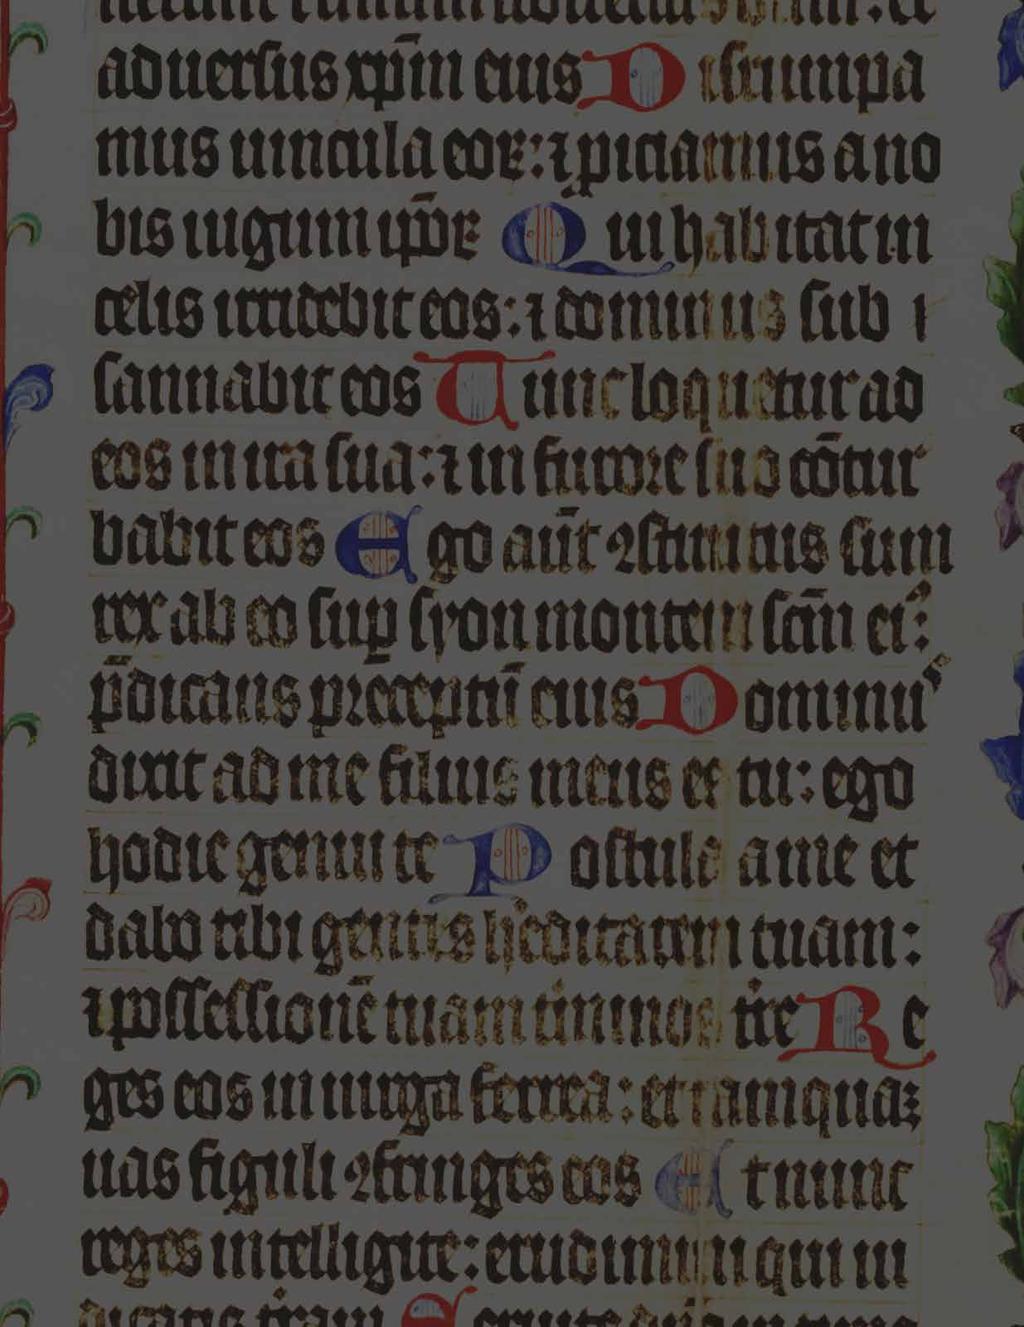 aduersus xp̄m eius Disrumpa
mus uincula eoꝝ: ⁊ piciamus a no
bis iugum ip̄oꝝ Qui habitat in
celis irridebit eos: ⁊ dominus sub
sannabit eos Tunc loquetur ad
eos in ira sua: ⁊ in furore suo cōtur
babit eos Ego aūt ꝯstitutus sum
rex ab eo suꝑ syon montem scm̄ eiꝰ:
p̄dicans preceptū eius Dominus
dixit ad me filius meus es tu: ego
hodie genui te Postula a me et
dabo tibi gentes h'editatem tuam:
⁊ possessionē tuam t'minos t're Re
ges eos in uirga ferrea: et tamquaꝫ
uas figuli ꝯfringes eos Et nunc
reges intelligite: erudimini qui iu
dicatis t'ram Seruite